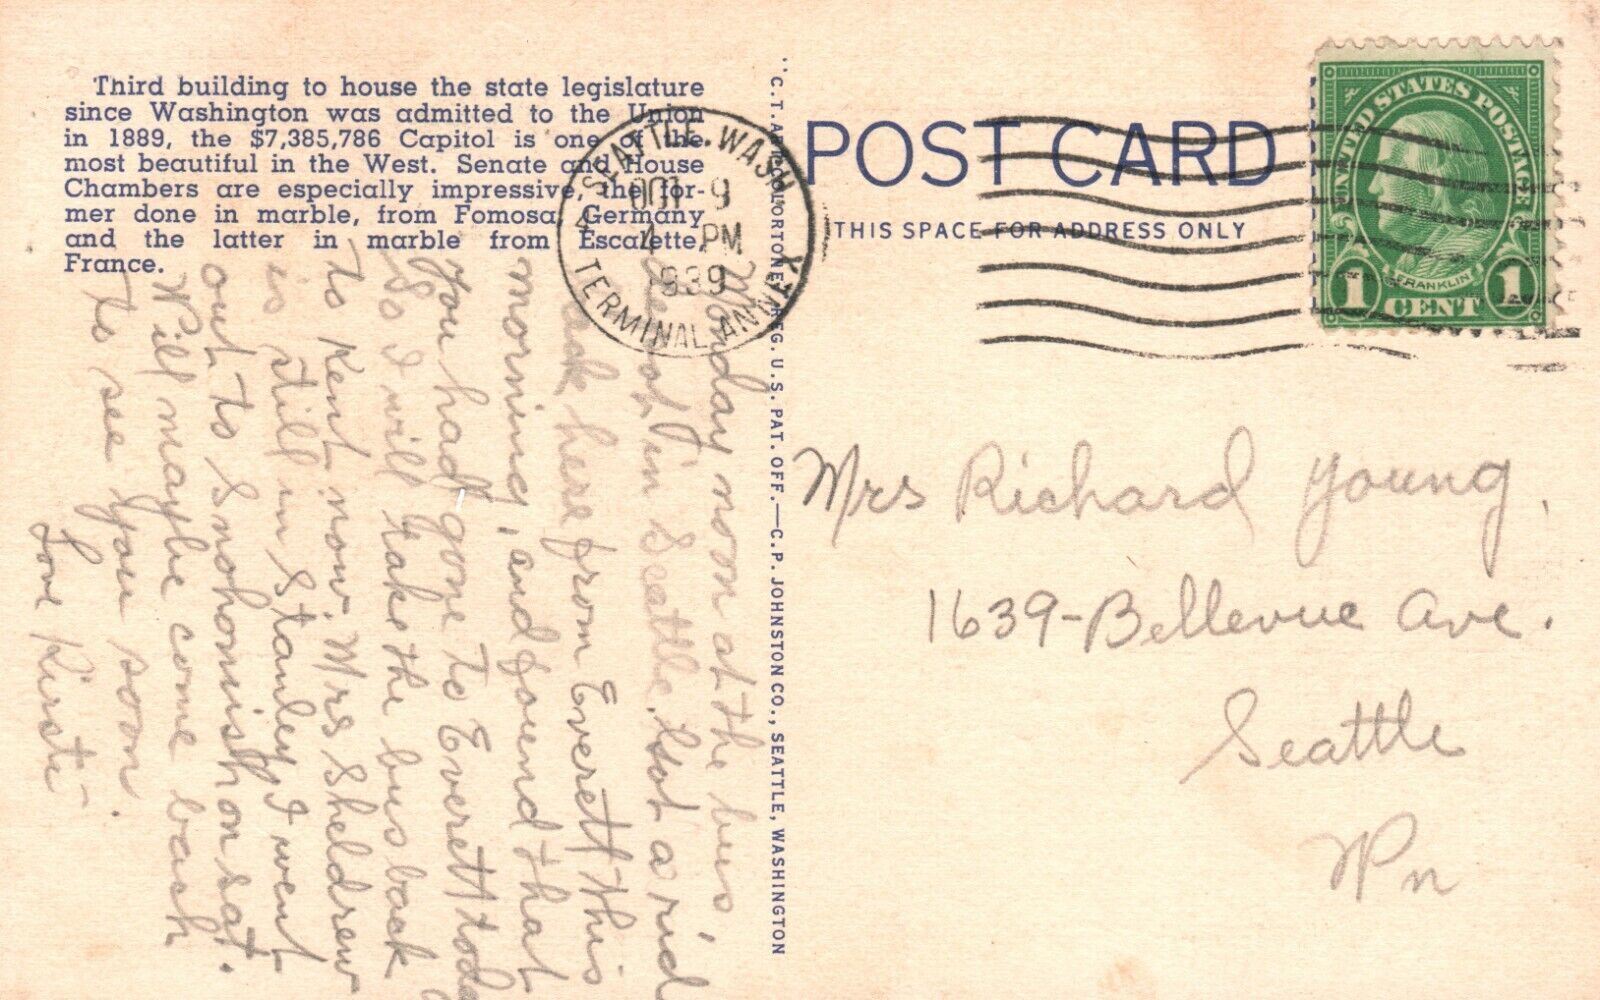 Third building to house the state legislature
since Washington was admitted to the Union
in 1889, the $7,385,786 Capitol is one of the
most beautiful in the West. Senate and House
Chambers are especially impressive, the for-
mer done in marble, from Fomosa, Germany
and the latter in marble from Escalette,
France.
Monday noon at the bus,
depot in Seattle. Got a ride
back here from Everett this
morning, and found that
you had gone to Everett today
So I will take the bus back
to Kent now. Mrs Sheldrew
is still in Stanley. I went
out to Snohomish on Sat.
Will maybe come back
to see you soon.
Love Kirste-
SEATTLE, WASH.
4
OCT 9
4 PM
1939
TERMINAL ANNEX
"C.T. ART-COLORTONE" REG. U.S. PAT. OFF.—C.P. JOHNSTON CO., SEATTLE, WASHINGTON
POST CARD
THIS SPACE FOR ADDRESS ONLY
UNITED STATES POSTAGE
FRANKLIN
1 CENT 1
Mrs Richard Young,
1639-Bellevue Ave.
Seattle
Wn